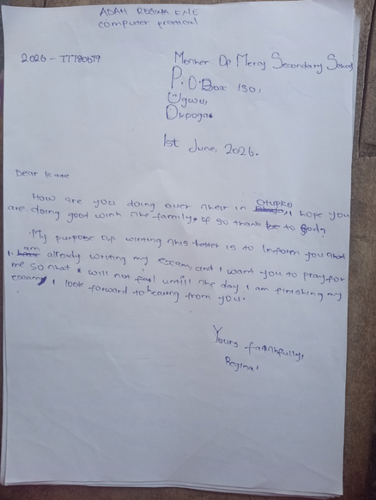 ADAH REGINA ENE
computer practical
2026 - 77780579
Mother Of Mercy Secondary School
P. O. Box 130,
Ugwu,
Okpoga.
1st June, 2026.
Dear
How are you doing over their in OTUKPO, I hope you
are doing good with the family, if so thank be to God?
My purpose of writing this letter is to inform you that
I am already writing my exam, and I want you to pray for
me so that I will not fail untill the day I am finishing my
exam, I look forward to hearing from you.
Yours faithfully,
Regina.